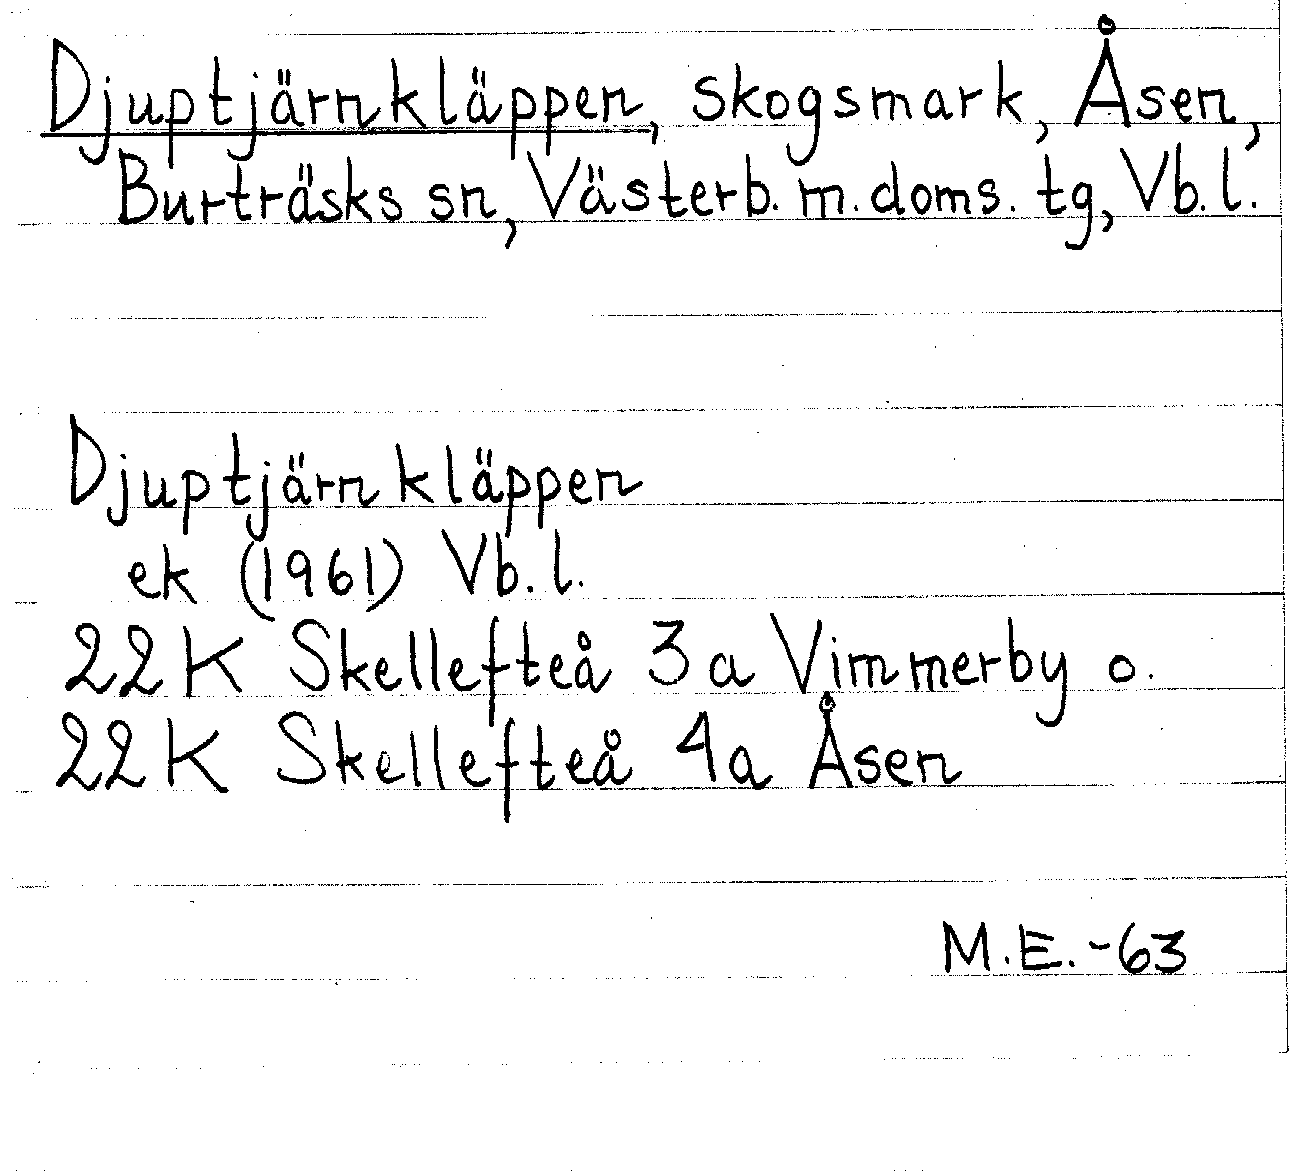 Djuptjärnkläppen, skogsmark, Åsen,
Burträsks sn, Västerb. m. doms. tg, Vb. l.
Djuptjärnkläppen
ek (1961) Vb. l.
22K Skellefteå 3a Vimmerby o.
22K Skellefteå 4a Åsen
M.E. -63